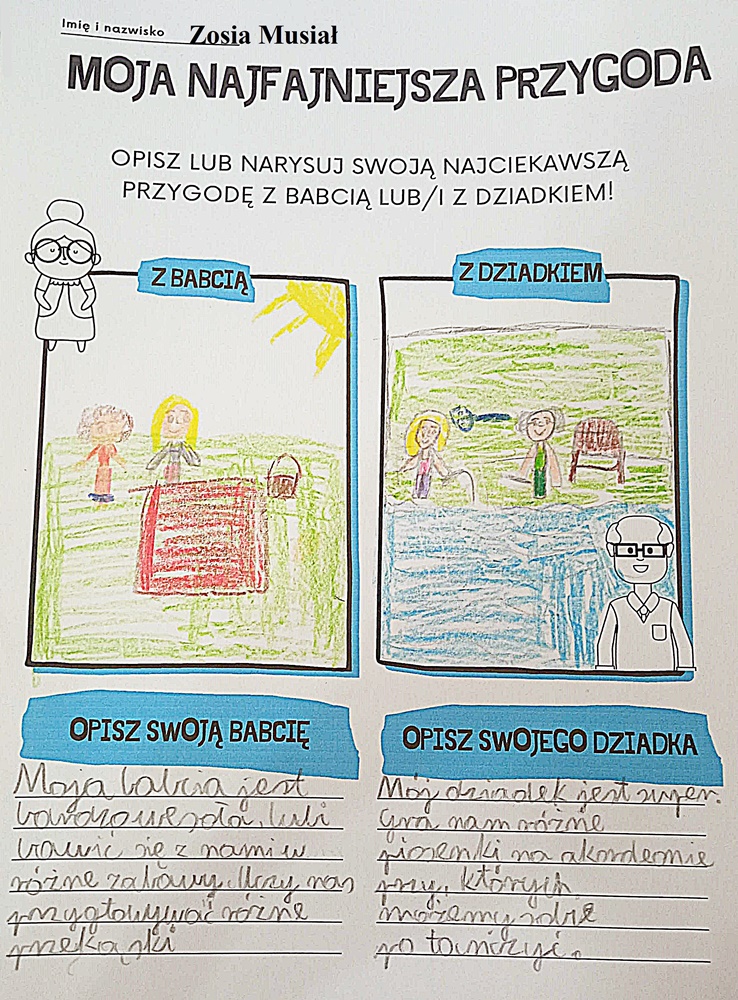 Imię i nazwisko Zosia Musiał
MOJA NAJFAJNIEJSZA PRZYGODA
OPISZ LUB NARYSUJ SWOJĄ NAJCIEKAWSZĄ
PRZYGODĘ Z BABCIĄ LUB/I Z DZIADKIEM!
Z BABCIĄ
Z DZIADKIEM
OPISZ SWOJĄ BABCIĘ
Moja babcia jest
bardzo wesoła, lubi
bawić się z nami w
różne zabawy. Uczy nas
przygotowywać różne
przekąski
OPISZ SWOJEGO DZIADKA
Mój dziadek jest super.
Gra nam różne
piosenki na akordeonie
przy, których
możemy sobie
po tańczyć.